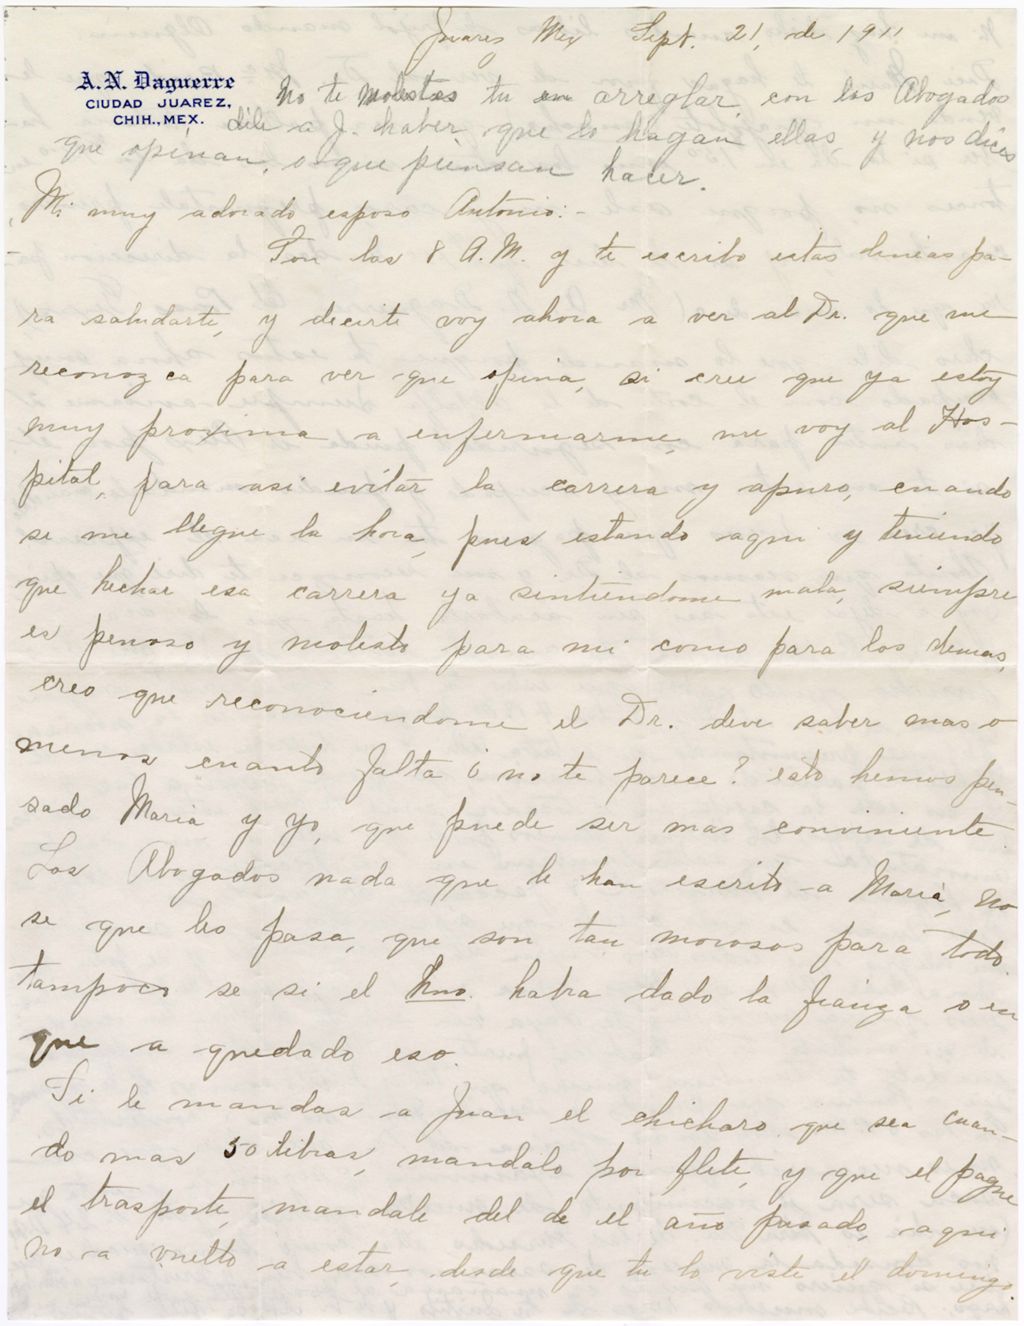 Juares Mex Sept. 21, de 1911
A. N. Daguerre
CIUDAD JUAREZ,
CHIH., MEX.
No te molestes tu en arreglar con los Abogados
dile a J. haber que lo hagan ellas, y nos dices
que opinan, o que piensan hacer.
Mi muy adorado esposo Antonio:-
Son las 8 A.M. y te escribo estas lineas pa-
ra saludarte, y decirte voy ahora a ver al Dr. que me
reconozca para ver que opina, si cree que ya estoy
muy proxima a enfermarme, me voy al Hos-
pital, para asi evitar la carrera y apuro, cuando
se me llegue la hora, pues estando aqui y teniendo
que hechar esa carrera ya sintiendome mala, siempre
es penoso y molesto para mi como para los demas,
creo que reconociendome el Dr. deve saber mas o
menos cuanto falta ó no te parece? esto hemos pen-
sado Maria y yo, que puede ser mas conviniente.
Los Abogados nada que le han escrito a Maria, no
se que les pasa, que son tan morosos para todo.
tampoco se si el Hno. habra dado la fianza o en
que a quedado eso.
Si le mandas a Juan el chicharo que sea cuan-
do mas 50 libras, mandalo por flete, y que el pague
el trasporte, mandale del de el año pasado, aqui
no a vuelto a estar, desde que tu lo viste el domingo.